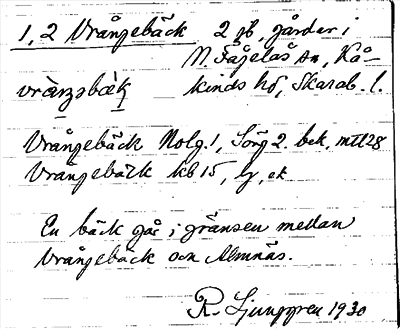 1, 2 Vrångebäck 2 gb, gårdar i
N. Fågelås sn, Kå-
kinds hd, Skarab. l.
vräŋsbæk
Vrångebäck Nolg. 1, Sörg 2. bek, mtl 28
Vrångebäck kb 15, lj, ek
En bäck går i gränsen mellan
Vrångebäck och Almnäs.
R. Ljunggren 1930